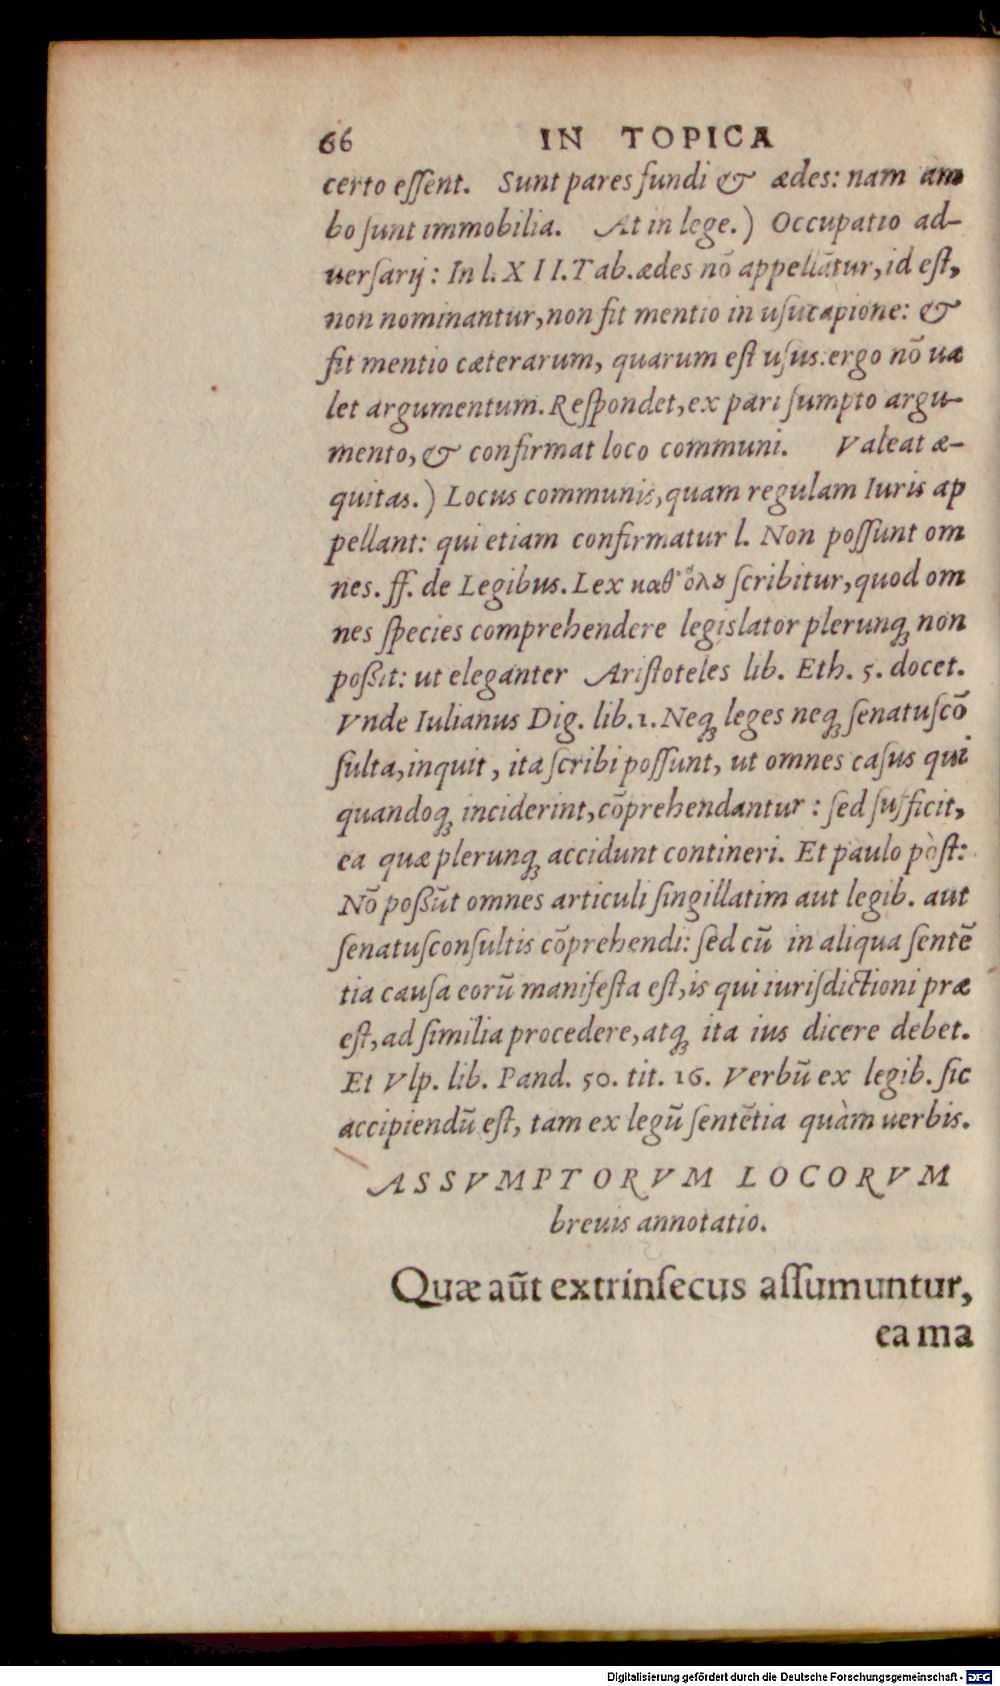 66 IN TOPICA
certo eſſent. Sunt pares fundi & ædes: nam am
bo ſunt immobilia. At in lege.) Occupatio ad-
uerſarij: In l. XII. Tab. ædes nõ appellãtur, id eſt,
non nominantur, non fit mentio in uſucapione: &
fit mentio cæterarum, quarum eſt uſus: ergo nõ ua
let argumentum. Reſpondet, ex pari ſumpto argu-
mento, & confirmat loco communi. Valeat æ-
quitas.) Locus communis, quam regulam Iuris ap
pellant: qui etiam confirmatur l. Non poſſunt om
nes. ff. de Legibus. Lex καθ᾽ ὅλȣ ſcribitur, quod om
nes ſpecies comprehendere legislator plerunq; non
poßit: ut eleganter Ariſtoteles lib. Eth. 5. docet.
Vnde Iulianus Dig. lib. 1. Neq; leges neq; ſenatuſcõ
ſulta, inquit, ita ſcribi poſſunt, ut omnes caſus qui
quandoq; inciderint, cõprehendantur: ſed ſufficit,
ea quæ plerunq; accidunt contineri. Et paulo pòſt:
Nõ poßũt omnes articuli ſingillatim aut legib. aut
ſenatuſconſultis cõprehendi: ſed cũ in aliqua ſentẽ
tia cauſa eorũ manifeſta eſt, is qui iuriſdictioni præ
eſt, ad ſimilia procedere, atq; ita ius dicere debet.
Et Vlp. lib. Pand. 50. tit. 16. Verbũ ex legib. ſic
accipiendũ eſt, tam ex legũ ſentẽtia quàm uerbis.
ASSVMPTORVM LOCORVM
breuis annotatio.
Quæ aũt extrinſecus aſſumuntur,
ea ma
Digitalisierung gefördert durch die Deutsche Forschungsgemeinschaft - DFG